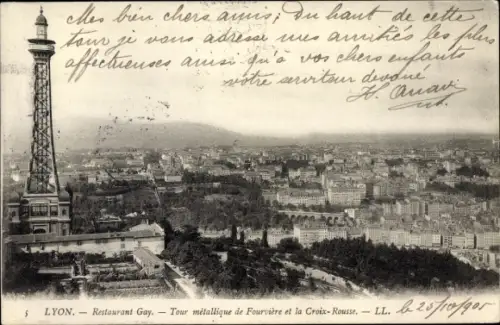 Mes bien chers amis; Du haut de cette
tour je vous adresse mes amitiés les plus
affectueuses ainsi qu'à vos chers enfants
votre serviteur devoué
5 LYON. - Restaurant Gay. - Tour métallique de Fourvière et la Croix-Rousse. - LL.
Lyon 25/08/1905